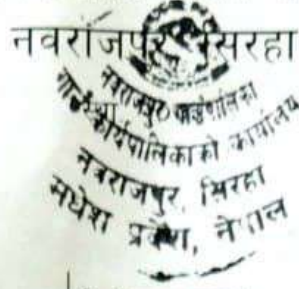 नवराजपुर सिरहा
नवराजपुर गाउँपालिका
गाउँ कार्यपालिकाको कार्यालय
नवराजपुर, सिरहा
मधेश प्रदेश, नेपाल